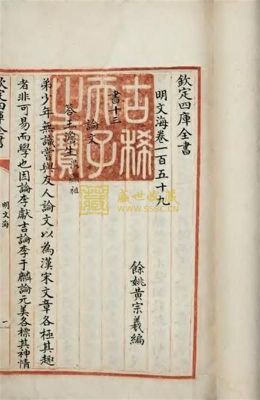 欽定四庫全書
明文海卷一百五十九
餘姚黃宗羲編
古稀天子之寶
書十三
論文
答王澹生
弟少年無識嘗與友人論文以為漢宋文章各極其趣
者非可易而學也因論李獻吉論李于鱗論元美各標其神情
欽定四庫全書
明文海
一
盛世收藏